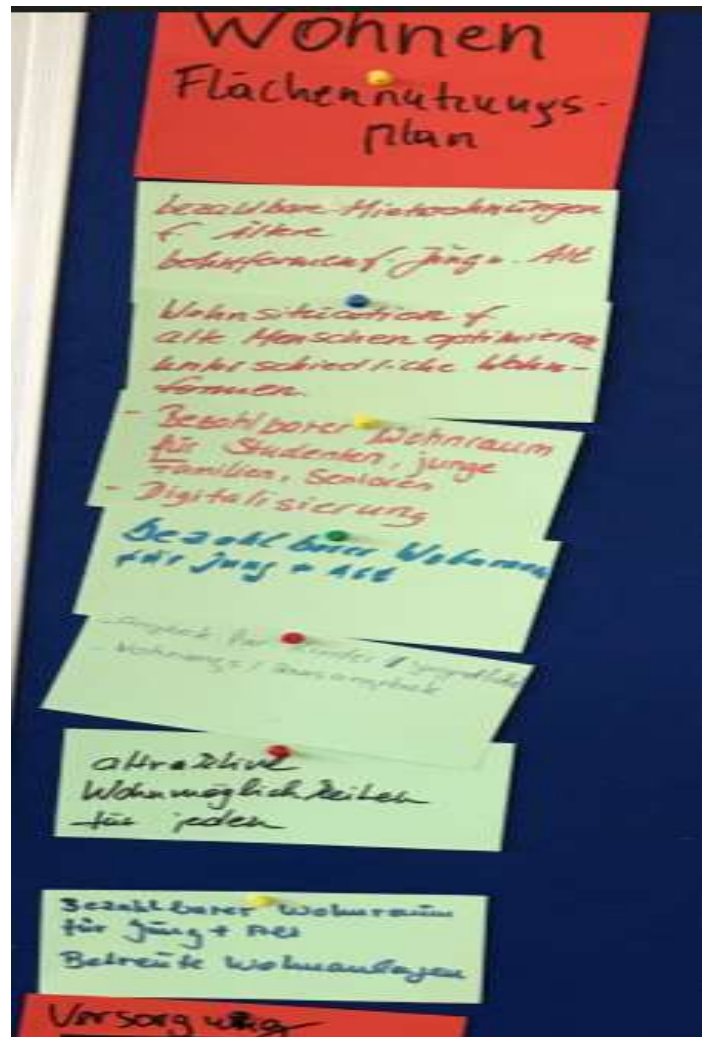 Wohnen
Flächennutzungs-
plan
bezahlbare Mietwohnungen
f ältere
Wohnformen f. jung u. Alt
Wohnsituation f
alte Menschen optimieren
unterschiedliche Wohn-
formen.
- Bezahlbarer Wohnraum
für Studenten, junge
Familien, Senioren
- Digitalisierung
Bezahlbarer Wohnraum
für jung + Alt
für Kinder / Jugendliche
- Wohnungs /
attraktive
Wohnmöglichkeiten
für jeden
Bezahlbarer Wohnraum
für Jung + Alt
Betreute Wohnanlagen
Versorgung